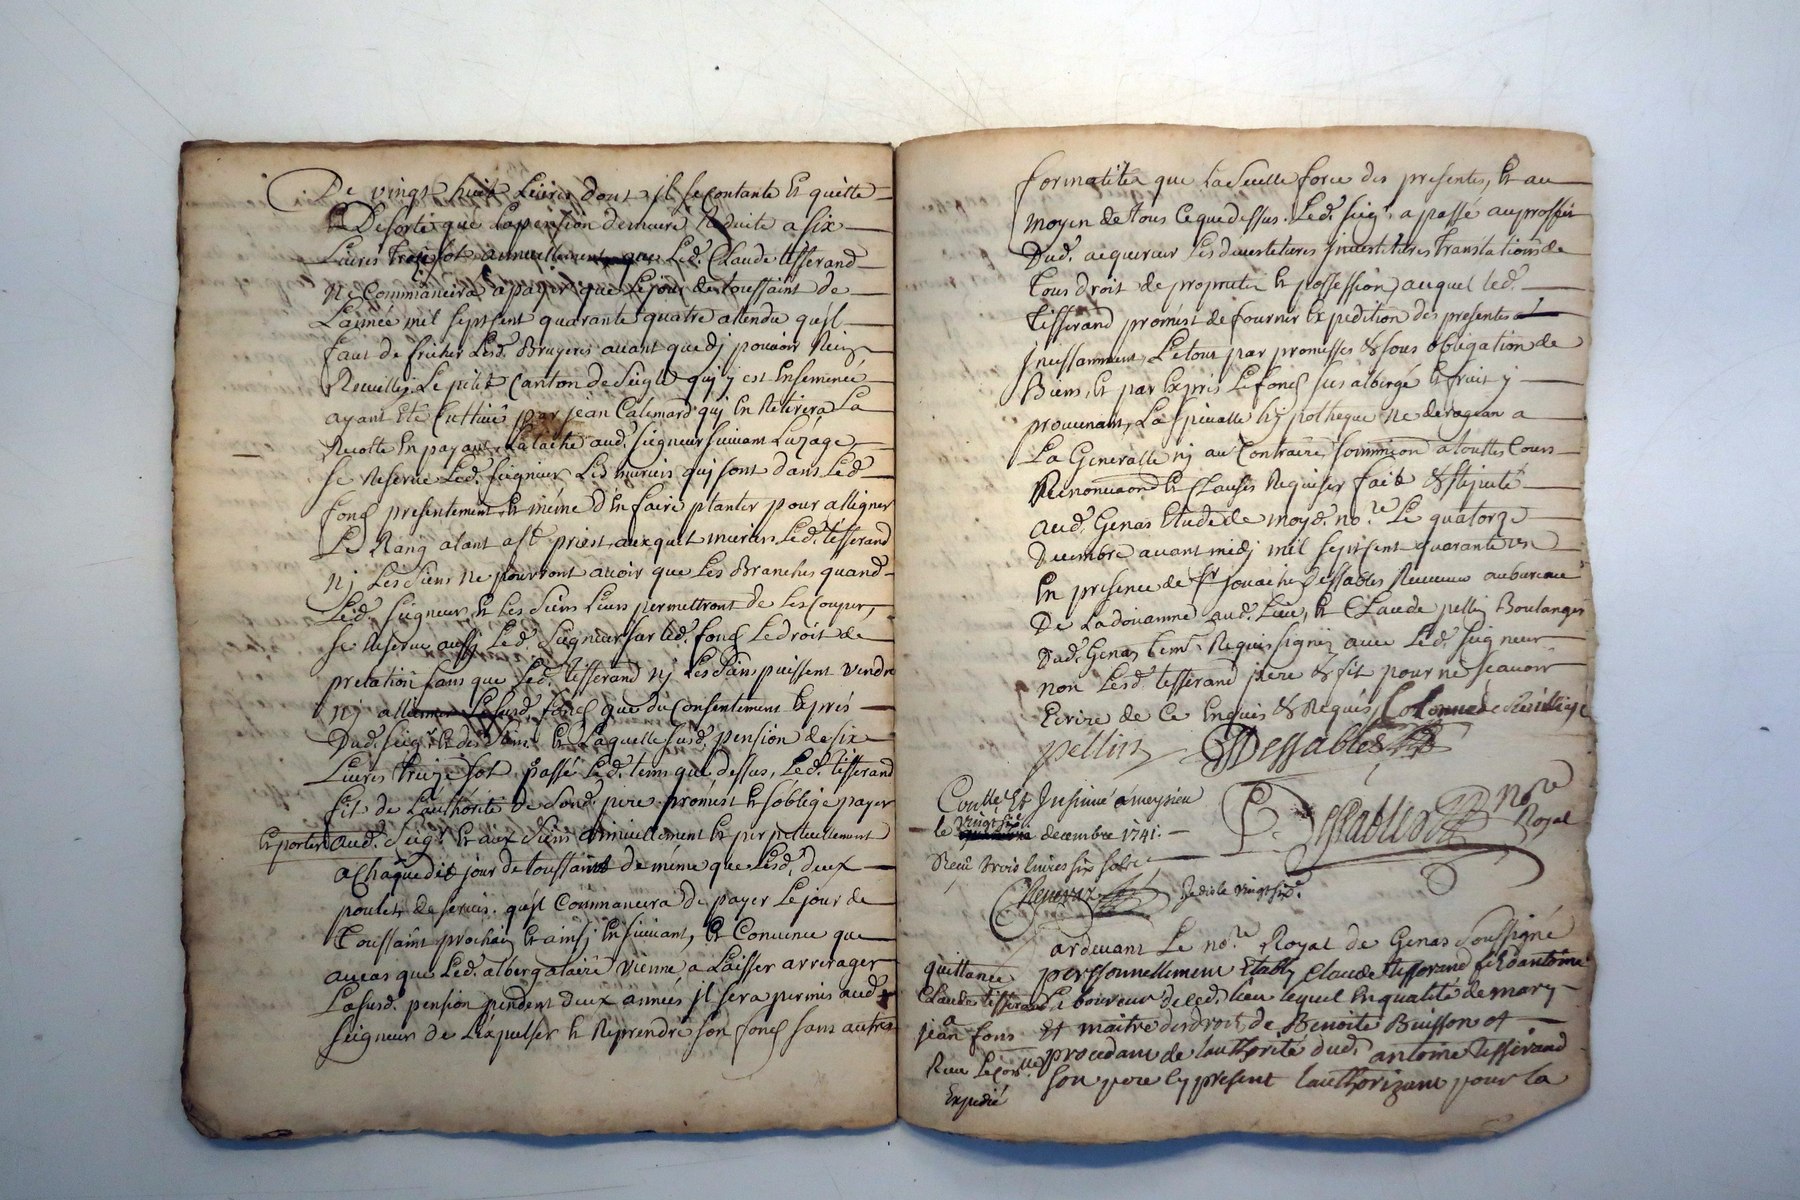 De vingt huit Livres dont il se contante Et quitte
Et Desorte que la pension demeure Reduite a six
Livres treize sol annuellement que Led. Claude tisserand
ne Commancera a payer que Le jour de toussaint de
L'année mil sept sent quarante quatre attendu qu'il
faut de fricher Lesd. Bruyeres avant que dj pouvoir Rien
Recuillir Le petit Canton de Seigle qui y est Ensemencé
ayant Eté Cultivé par jean Calemard qui En Retirera La
Recolte En payant La tache aud. seigneur suivant Luzage
se Reserve Led. seigneur Les muriers qui sont dans Led.
fond presentement Et méme d'En faire planter pour alligner
Le Rang alant a St. priest auxquels muriers Led. tisserand
nj Les siens ne pourront avoir que Les Branches quand
Led. seigneur Et les siens Leurs permettront de les couper,
se Reserve aussj Led. seigneur sur led. fond Le droit de
prelation sans que Led. tisserand nj Les siens puissent vendre
nj alliener Lesusd. fond que du Consentement Exprés
Dud. seigr. Et des siens Et Laquelle susd. pension de six
Livres treize sol passé Led. tems que dessus, Led. tisserand
fils de L'authorité de sond. pere promest Et s'oblige payer
Et porter aud. seigr. Et aux siens annuellement Et perpetuellement
a Chaque dit jour de toussaint de méme que Lesd. deux
poulets de servis qu'il Commancera de payer Le jour de
Toussaint prochain Et ainsj En suivant, Et Convenu que
aucas que Led. albergataire vienne a Laisser arrerager
La susd. pension pendent deux années jl sera permis aud.
seigneur de L'expulser Et Reprendre son fond sans autres
formalités que La seulle force des presentes, Et au
moyen de tous Ce que dessus. Led. seigr. a passé au proffit
Dud. acquereur Les devestitures jnvestitures Translations de
Tous droit de proprieté Et possession auquel led.
Tisserand promest de fournir Expedition des presentes
jncessamment, Le tout par promesses & sous obligation de
Biens, Et par Exprés Le fond sus albergé Et fruit y
provenant, La speciale hypotheque ne derogeant a
La Generalle nj au Contraire soumission a touttes Cours
Renonciaons Et Clauses Requises fait & stipulé
aud. Genas Etude de moyd. nore. Le quatorze
Decembre avant midj mil sept sent quarante un
En presence de Sr. Dessables Receveur au bureau
De La doüanne dud. Lieu, Et Claude pellin Boulanger
Dud. Genas tems. Requis signés avec Led. seigneur
non Lesd. tisserand pere & fils pour ne sçavoir
Ecrire de Ce Enquis & Requis,
pellin Dessables
Coulle. Et Insinué a meysieu
le vingt six decembre 1741.
Receu trois livres six sols
Dessables Nore Royal
Je dis le vingt six.
ardevant Le nore. Royal de Genas soussigné
personnellement Etably Claude tisserand fils d'antoine
Laboureur de ced. lieu lequel En qualité de mary
Et maitre des droits de Benoite Buisson et
procedant de l'authorité dud. antoine tisserand
son pere Cy present l'authorizant pour la
quittance
Claude tisserand
a
jean fons
Expedié